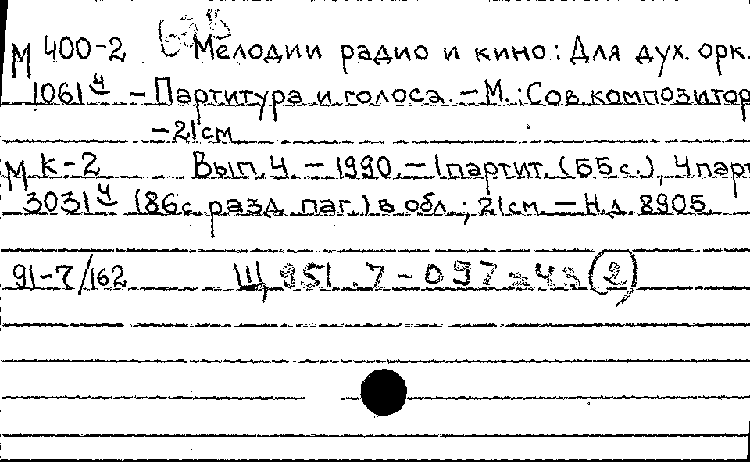 М 400-2 Мелодии радио и кино: Для дух. орк.
1061 4 – Партитура и голоса. – М.: Сов. композитор
– 21 см
М К-2 Вып. 4. – 1990. – 1 партит. (55 с.), 4 парт
3031 4 (86 с. разд. паг.) в обл.; 21 см. – Н.д. 8905.
91-7/162 Щ 951.7-097=43 (2)